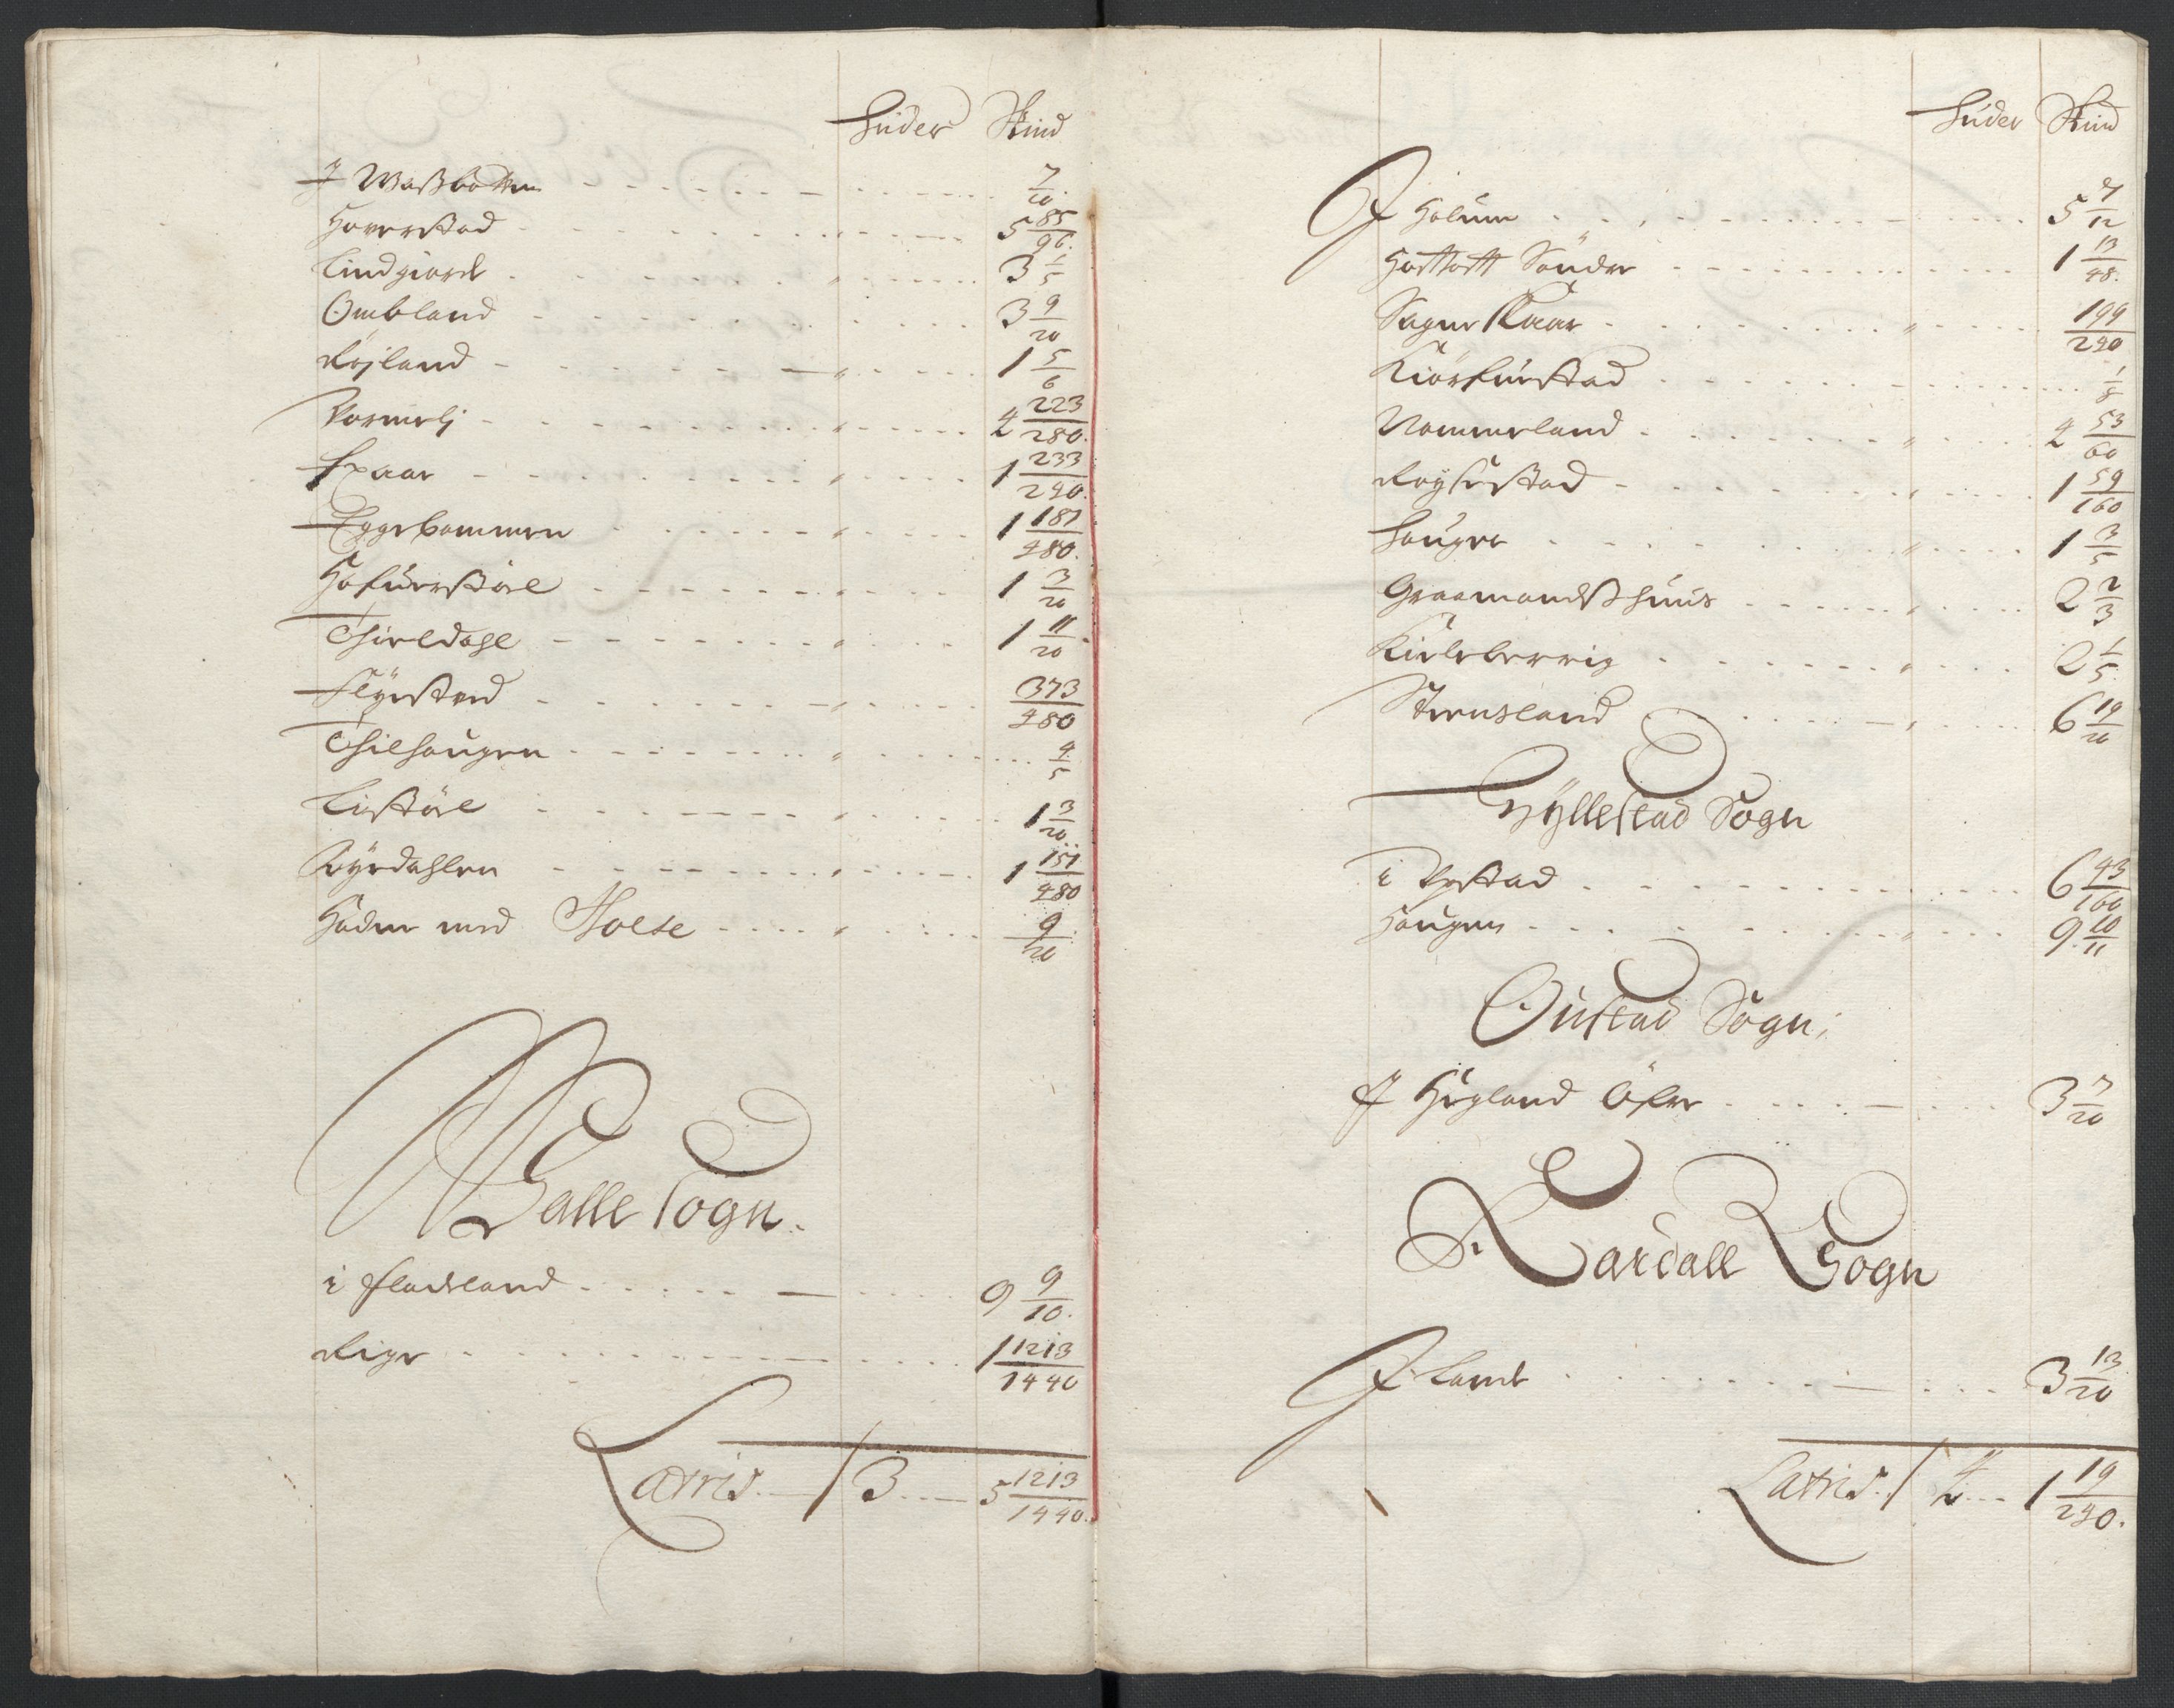 Huder Skind
J Waßbotten 7/20
Haverstad 5 85/96
Lindgiord 3 1/5
Ombland 3 9/20
Røjland 1 5/6
Vormeli 4 223/280
Haar 1 233/240
Eggebommen 1 187/480
Hafuerstöel 1 3/20
Thoreldahl 1 11/20
Fløystved 373/480
Thilhaugen 4/5
Listöel 1 3/20
Røyrdahlen 1 151/480
Haden med Holte 9/20
Walle Sogn.
i Fladeland 9 9/10
Rige 1 1213/1440
Latris 3 5 1213/1440
Huder Skind
J Holum 5 7/12
Hartvett Sönder 1 13/48
Sagne Kaar 199/240
Kiörfuestad 1/8
Nommeland 4 53/60
Røysestad 1 59/160
Hauger 1 3/5
Graamandshuus 2 2/3
Kieleberrig 2 1/5
Strensland 6 19/20
Hyllestad Sogn
i Røstad 6 43/160
Haugen 9 10/11
Oustad Sogn
J Högland Öfre 3 7/20
Lardall Sogn
J Lande 3 13/20
Latris 4 1 19/240